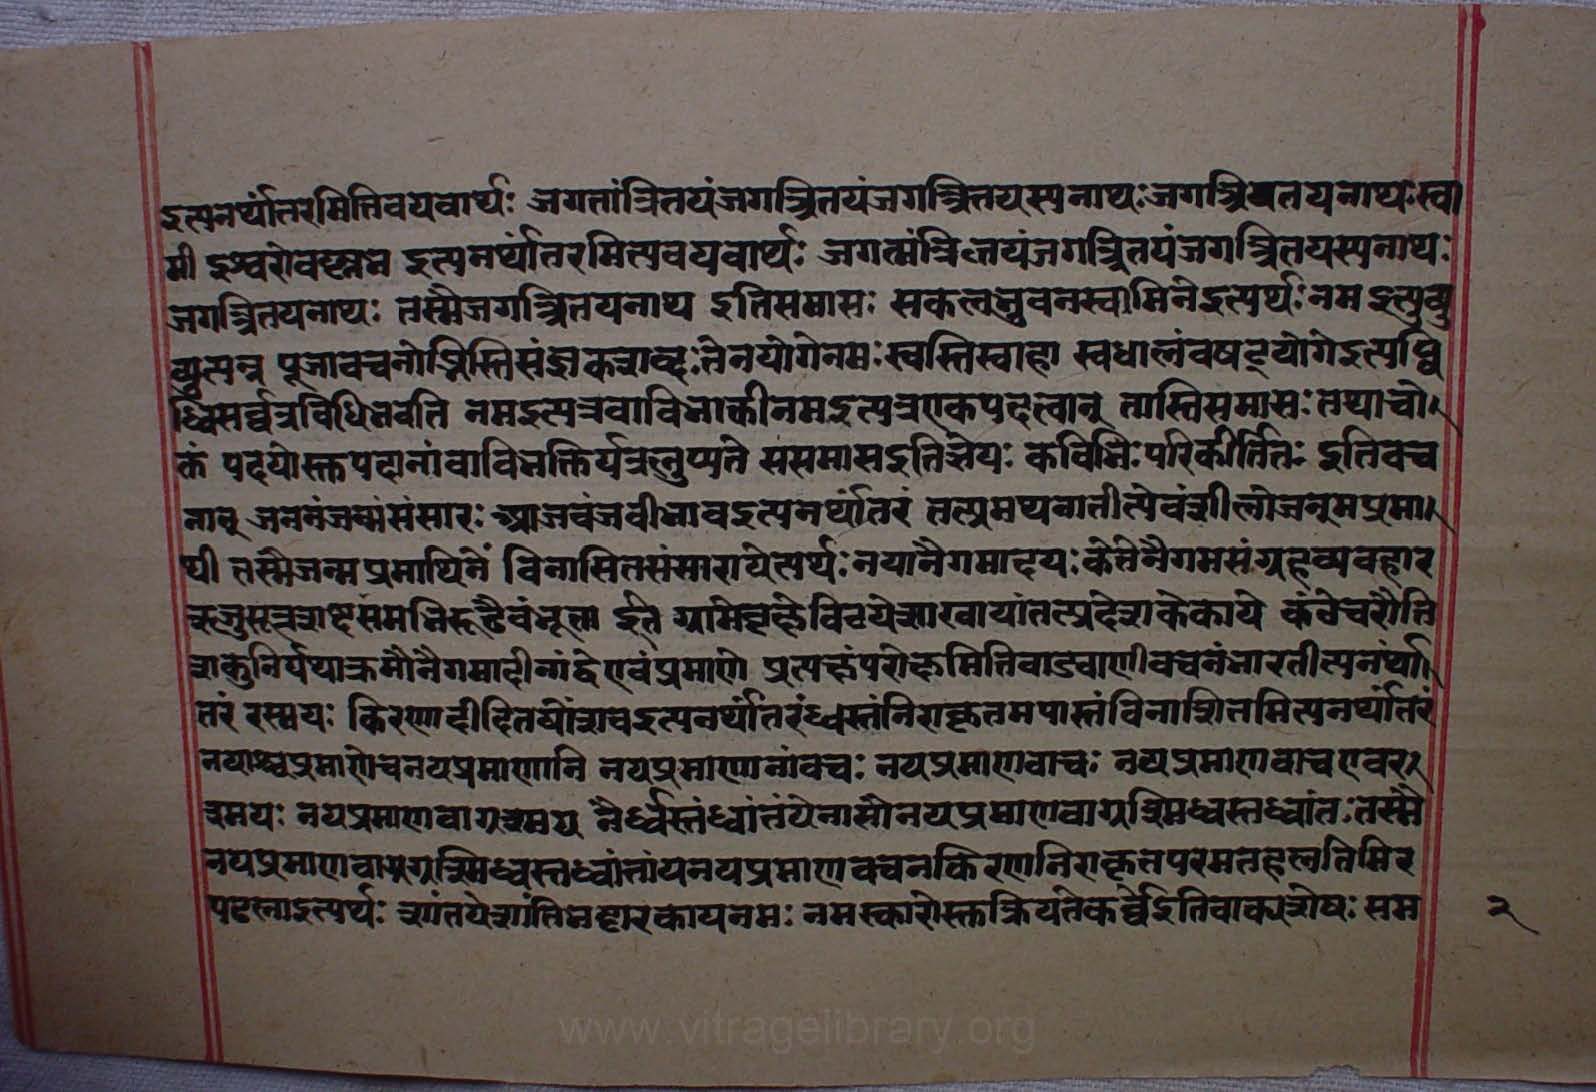 इत्यनर्थांतरमितिवयवार्थः जगतांत्रितयंजगत्त्रितयंजगत्त्रितयस्यनाथःजगत्त्रितयनाथःस्वा
मी इश्वरोवल्लभ इत्यनर्थांतरमित्यवयवार्थः जगत्मांत्रितयंजगत्त्रितयंजगत्त्रितयस्यनाथः
जगत्त्रितयनाथः तस्मैजगत्त्रितयनाथ इतिसमासः सकलभुवनस्वामिनेइत्यर्थःनम इत्युव्यु
व्युत्पन्न पूजावचनो तेनयोगेनमःस्वस्तिस्वाहा स्वधालंवषट्योगेइत्य
र्व्वत्रविधिभवति नमइत्यत्रवाविभक्तीनमइत्यत्रएकपदत्वात् नास्तिसमासः तथाचो
क्तं पदयोस्तपदानांवाविभक्तिर्यत्रलुप्यते ससमासइतिज्ञेयः कविभिःपरिकीर्तितः इतिवच
नात् जननंजन्मंसंसारः आजवंजवीभावइत्यनर्थांतरं तत्प्रमथनातीत्येवंशीलोजन्मप्रमा
थी तस्मैजन्मप्रमाथिने विनासितसंसारायेत्यर्थःनयानैगमादयःकेतेनैगमसंग्रहव्यवहार
ऋजुसूत्रशब्दसमभिरूढैवंभूता इति
शकुनिर्यथाक्रमौनैगमादीनांद्वेएवंप्रमाणे प्रत्यक्षंपरोक्षमितिवाङवाणीवचनंभारतीत्यनर्था
तरं रस्मयः किरणादीधितयोंशवइत्यनर्थांतरंध्वस्तंनिराकृतमपास्तंविनाशितमित्यनर्थांतरं
नयाश्चप्रमाणेचनयप्रमाणानि नयप्रमाणानांवचः नयप्रमाणवाचः नयप्रमाणवाचएवर
श्मयः नयप्रमाणवाग्रश्मय तैर्ध्वस्तंध्वांतंयेनासौनयप्रमाणवाग्रश्मिध्वस्तध्वांतःतस्मै
नयप्रमाणवाग्ग्रश्मिध्वस्तध्वांत्तांयनयप्रमाणवचनकिरणनिराकृतपरमतहलतिमिर
पटलाइत्यर्थः शांतयेशांतिभट्टारकायनमः नमस्कारोस्तक्रियतेकर्त्तेइतिवाक्यशेषः सम
२
www.vitragelibrary.org